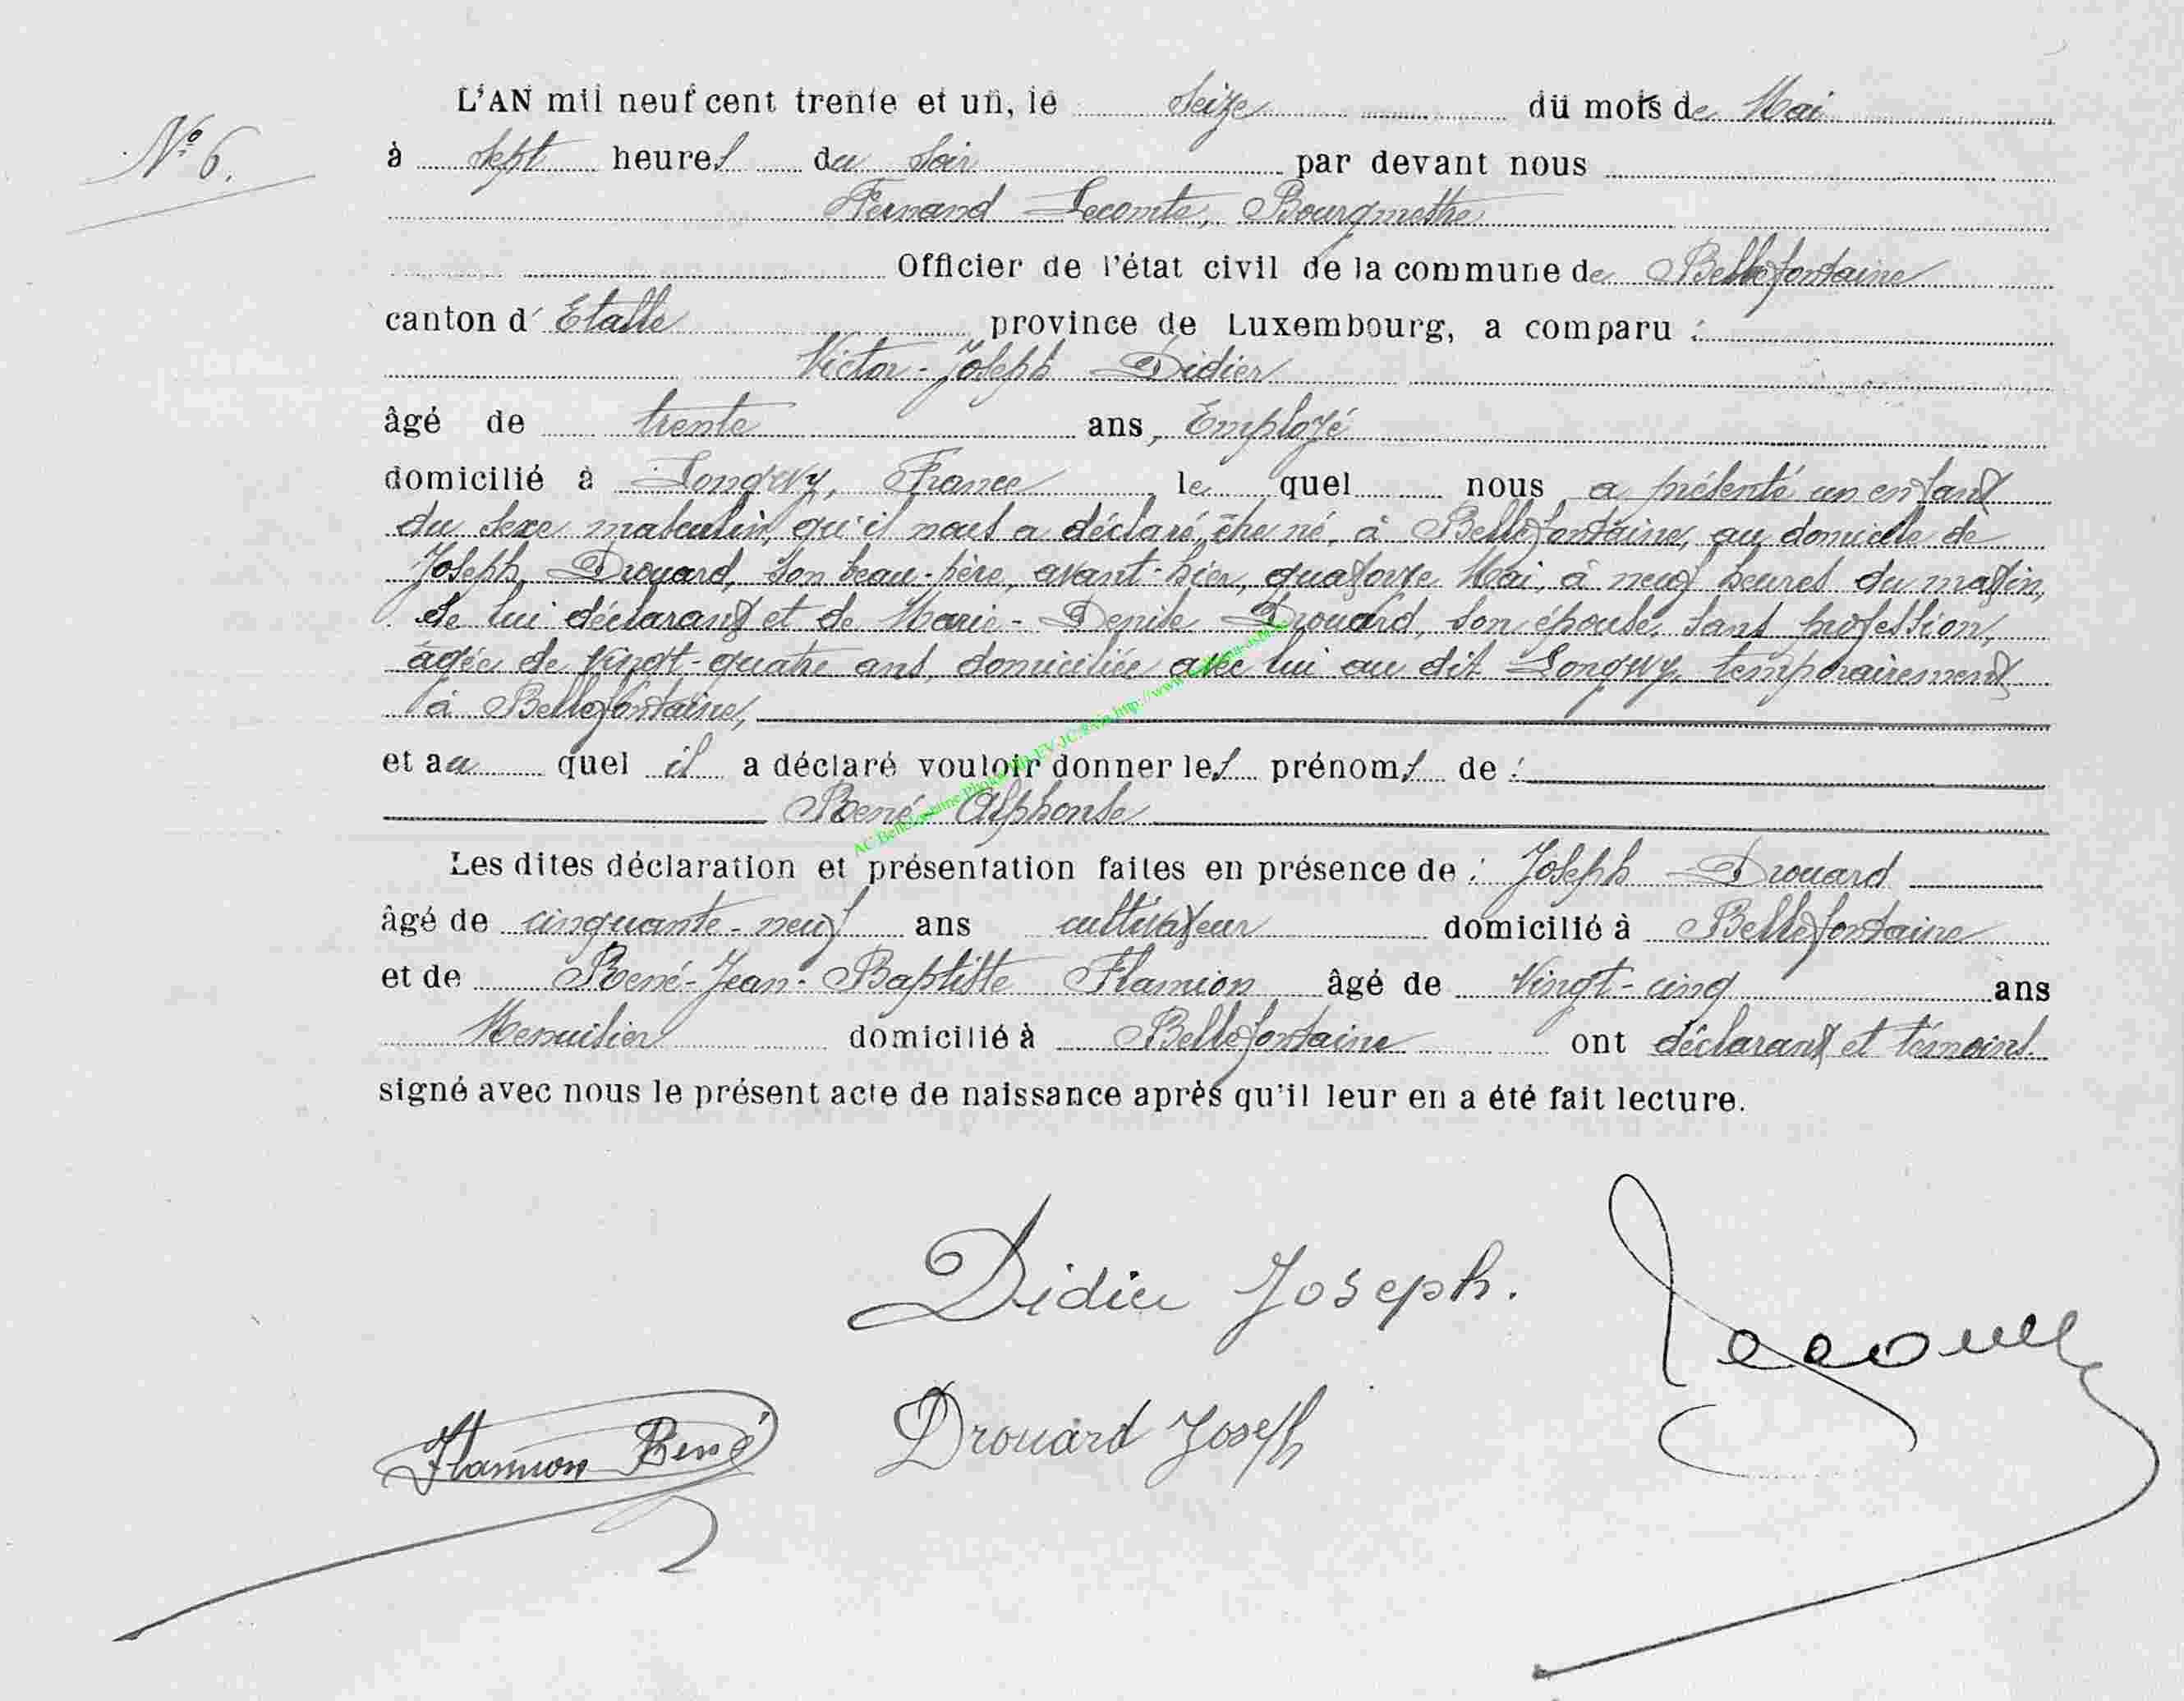 L'AN mil neuf cent trente et un, le seize du mois de Mai
N° 6.
à sept heures du soir par devant nous
Fernand Lecomte, Bourgmestre
Officier de l'état civil de la commune de Bellefontaine
canton d'Etalle province de Luxembourg, a comparu :
Victor-Joseph Didier
âgé de trente ans, Employé
domicilié à Longwy, France le quel nous a présenté un enfant
du sexe masculin, qu'il nous a déclaré être né, à Bellefontaine, au domicile de
Joseph Drouard, son beau-père, avant-hier, quatorze Mai, à neuf heures du matin,
de lui déclarant et de Marie-Denise Drouard, son épouse, sans profession,
âgée de vingt-quatre ans, domiciliée avec lui au dit Longwy, temporairement
à Bellefontaine,
et au quel il a déclaré vouloir donner les prénoms de :
René Alphonse
Les dites déclaration et présentation faites en présence de : Joseph Drouard
âgé de cinquante-neuf ans cultivateur domicilié à Bellefontaine
et de René-Jean-Baptiste Flamion âgé de vingt-cinq ans
Menuisier domicilié à Bellefontaine ont déclarant et témoins
signé avec nous le présent acte de naissance après qu'il leur en a été fait lecture.
Didier Joseph.
Lecomte
Flamion René
Drouard Joseph
AC Bellefontaine Photo http://www